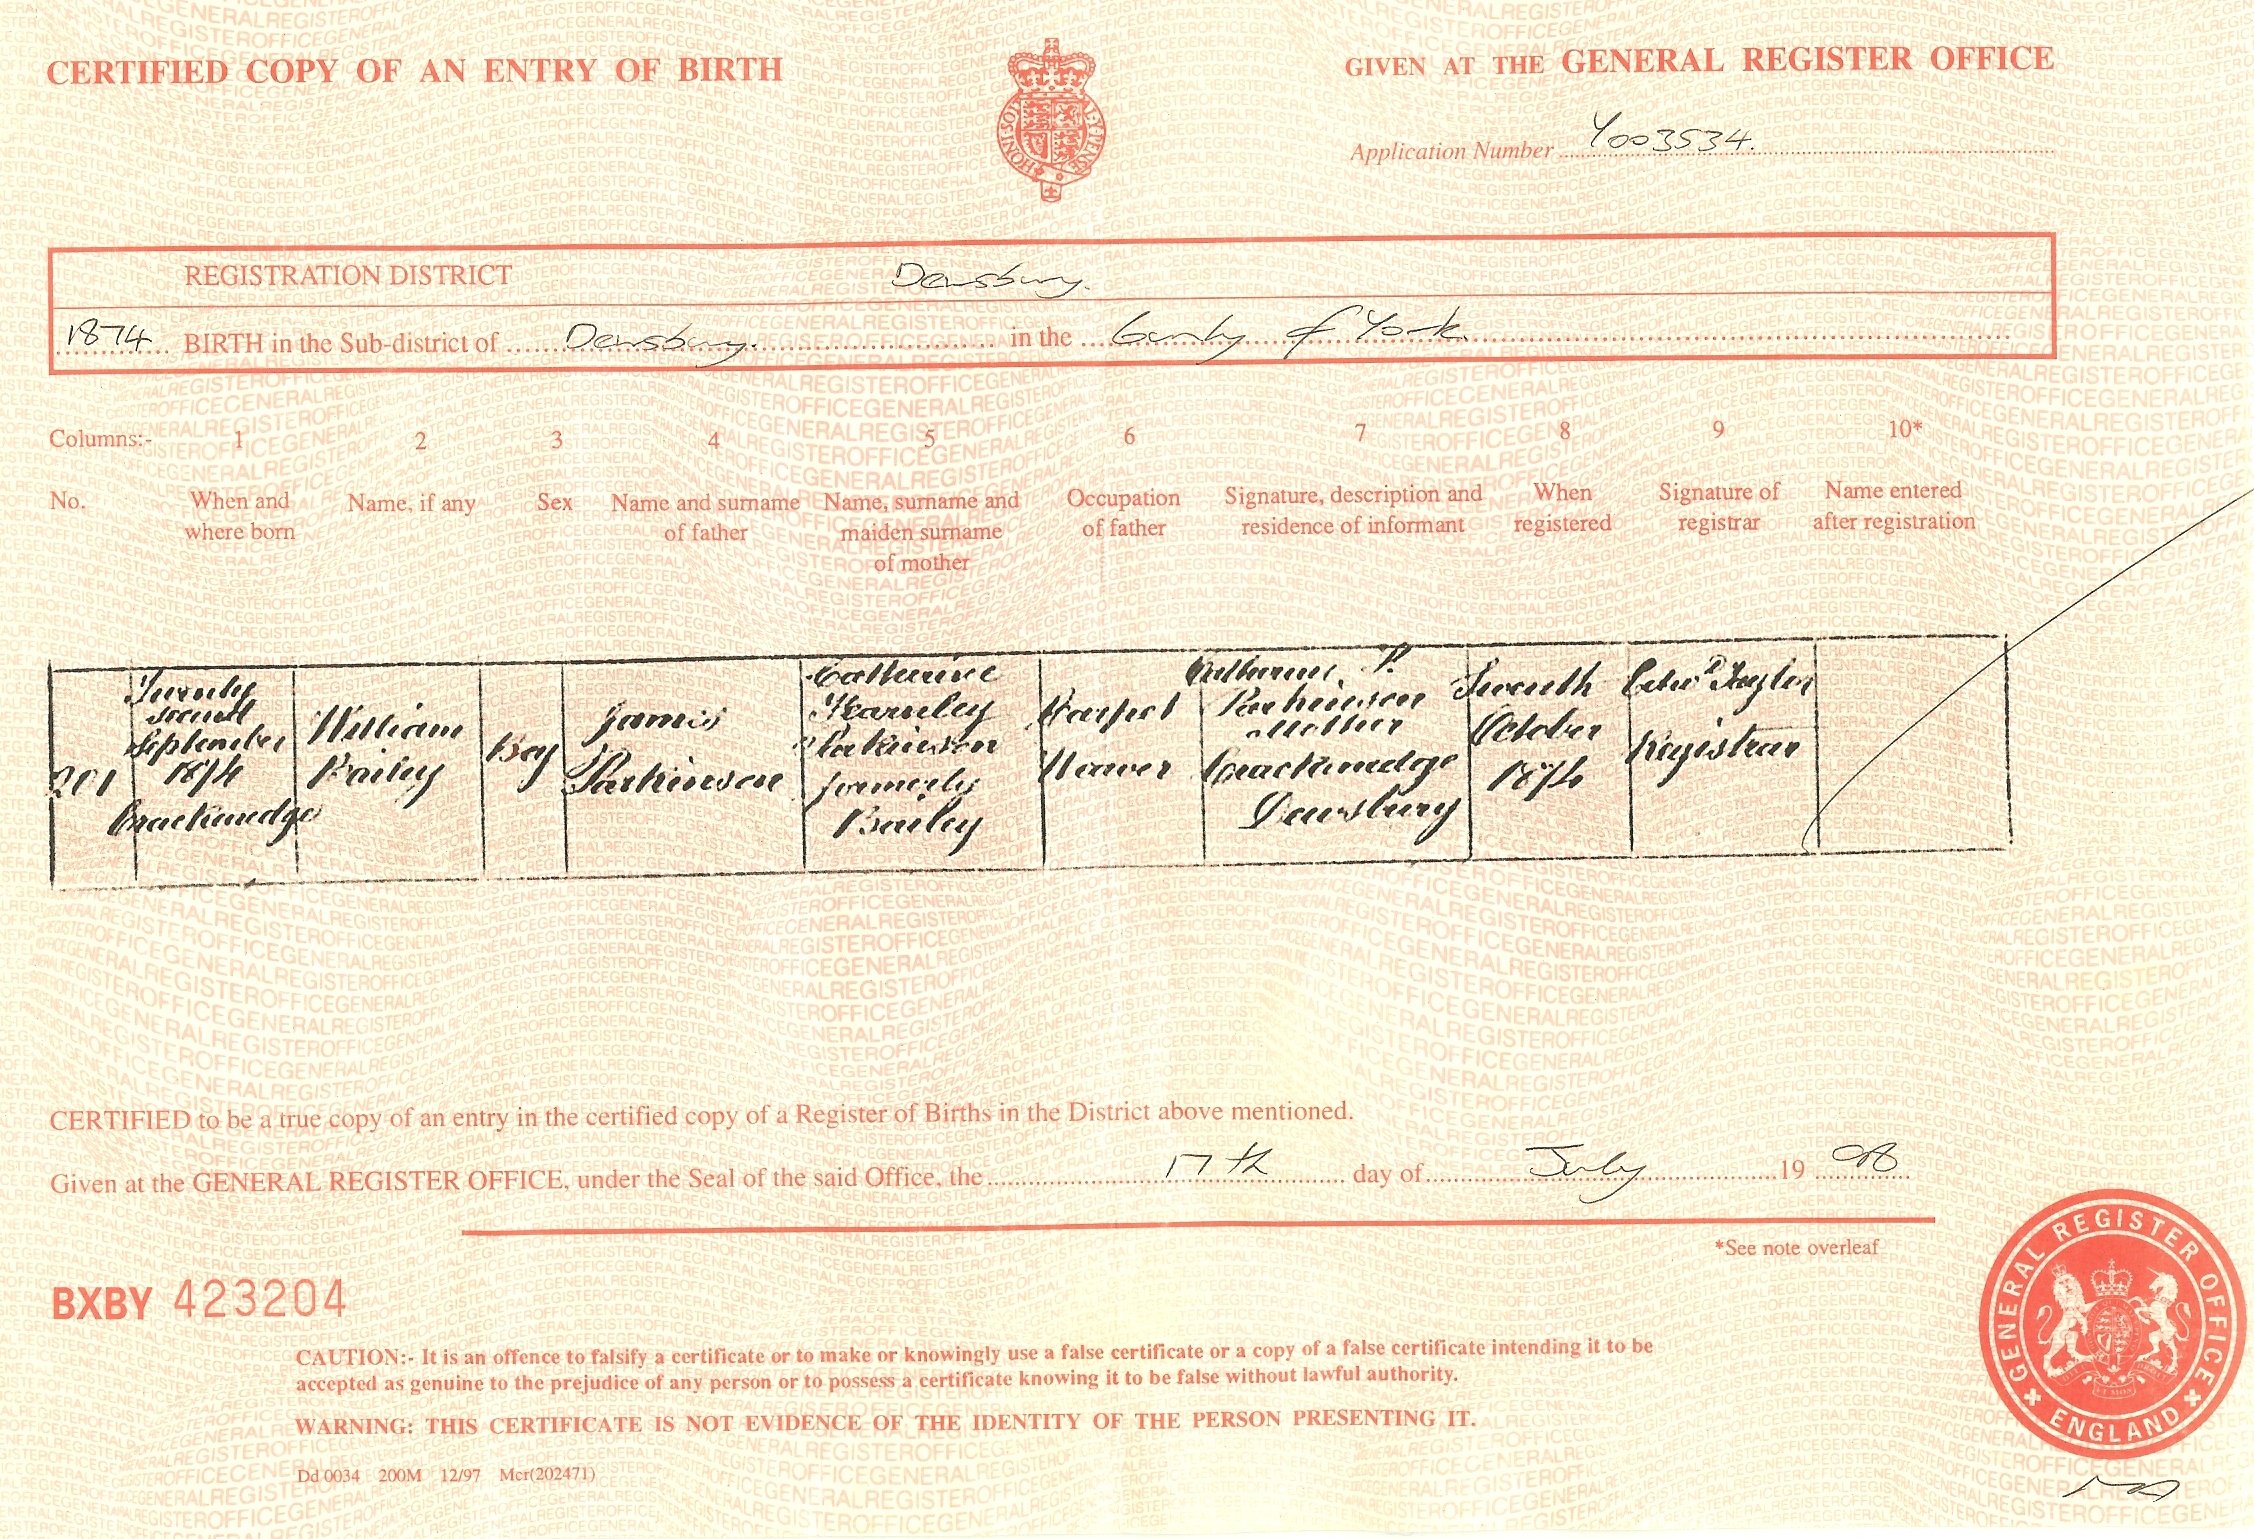 CERTIFIED COPY OF AN ENTRY OF BIRTH
GIVEN AT THE GENERAL REGISTER OFFICE
Application Number Y003534.
REGISTRATION DISTRICT Dewsbury.
1874 BIRTH in the Sub-district of Dewsbury. in the County of York.
Columns:- 1 2 3 4 5 6 7 8 9 10*
No.
When and
where born
Name, if any
Sex
Name and surname
of father
Name, surname and
maiden surname
of mother
Occupation
of father
Signature, description and
residence of informant
When
registered
Signature of
registrar
Name entered
after registration
201
Twenty
second
September
1874
Crackenedge
William
Bailey
Boy
James
Parkinson
Catherine
Parkinson
formerly
Bailey
Carpet
Weaver
Parkinson
Mother
Crackenedge
Dewsbury
Seventh
October
1874
Edwd Taylor
Registrar
CERTIFIED to be a true copy of an entry in the certified copy of a Register of Births in the District above mentioned.
Given at the GENERAL REGISTER OFFICE, under the Seal of the said Office, the 17th day of July 19 98
*See note overleaf
BXBY 423204
CAUTION:- It is an offence to falsify a certificate or to make or knowingly use a false certificate or a copy of a false certificate intending it to be
accepted as genuine to the prejudice of any person or to possess a certificate knowing it to be false without lawful authority.
WARNING: THIS CERTIFICATE IS NOT EVIDENCE OF THE IDENTITY OF THE PERSON PRESENTING IT.
Dd 0034 200M 12/97 Mcr(202471)
GENERAL REGISTER OFFICE
ENGLAND